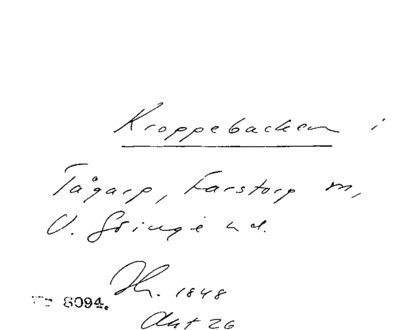 Kroppebacken i
Tågarp, Farstorp m,
V. Göinge hd.
Jh. 1848
8094.
Akt 26